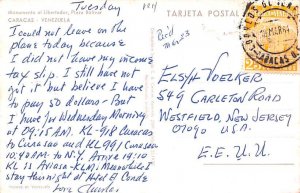 Tuesday
Monumento al Libertador, Plaza Bolivar
CARACAS - VENEZUELA
TARJETA POSTAL
I could not leave on the
plane today because
I did not have my income
tax slip. I still have not
got it but I believe I have
to pay 50 dollars - But
I have for Wednesday Morning
at 09:15 AM. KL-914 Curacao
to Curacao and KL991 Curacao
10:40 AM to N-Y. Arrive 14:10
KL is Aviasa-KLM. Meanwhile I
stay this night at Hotel El Conde
Love Charles
Rcid
Mar 23
CARACAS
ELSYH VOELKER
549 CARLETON ROAD
WESTFIELD, NEW JERSEY
07090 USA
E.E.U.U.